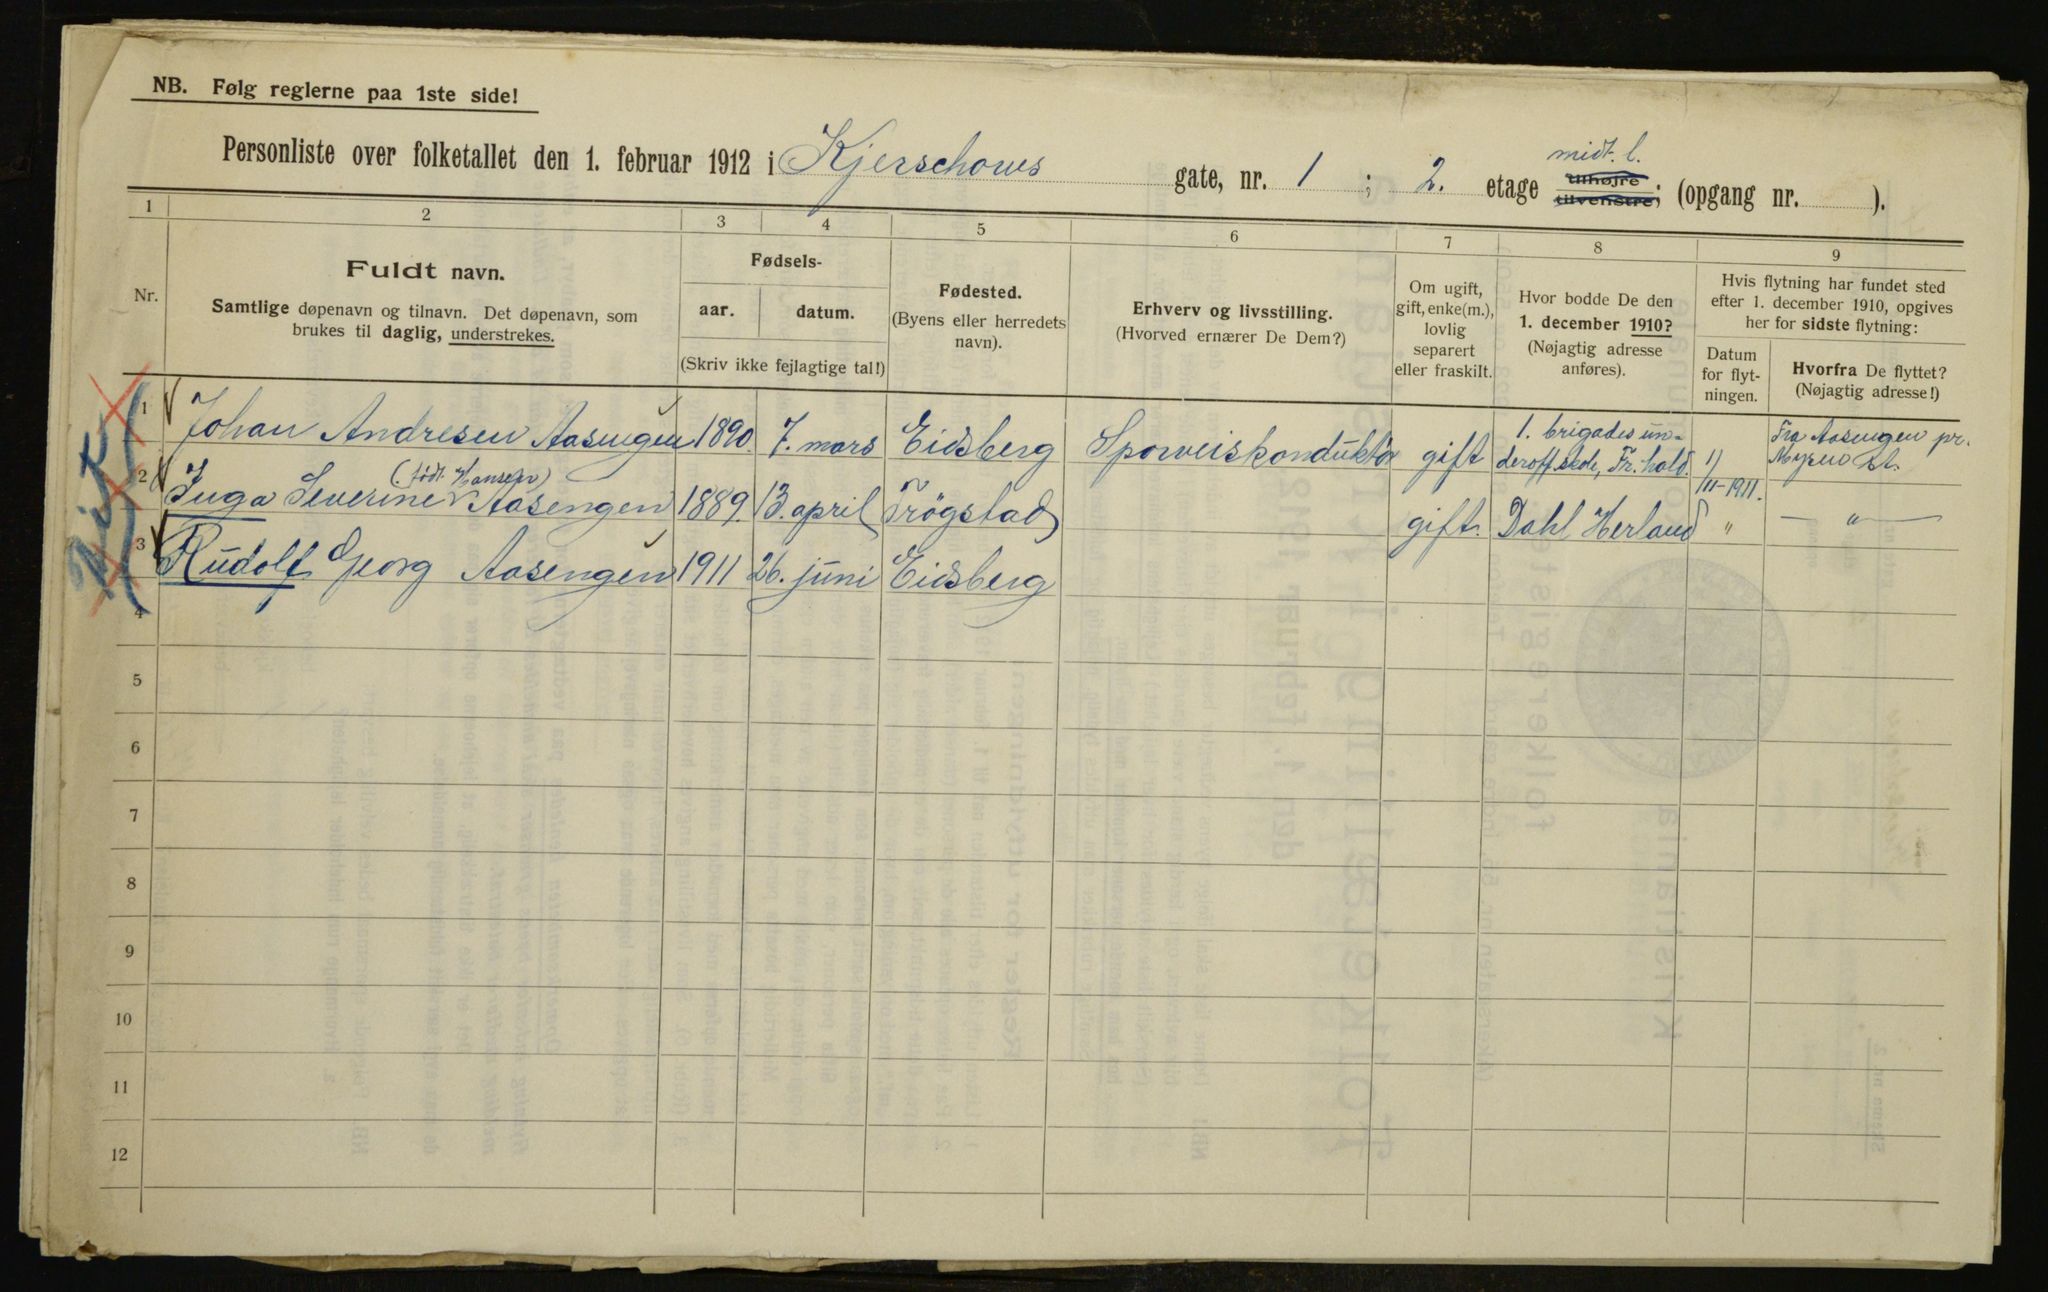 NB. Følg reglerne paa 1ste side!
Personliste over folketallet den 1. februar 1912 i Kjerschows gate, nr. 1 ; 2. etage midt. l. tilhøjre tilvenstre; (opgang nr. ).
1 2 3 4 5 6 7 8 9
Nr.
Fuldt navn.
Samtlige døpenavn og tilnavn. Det døpenavn, som
brukes til daglig, understrekes.
Fødsels-
aar. datum.
(Skriv ikke fejlagtige tal!)
Fødested.
(Byens eller herredets
navn).
Erhverv og livsstilling.
(Hvorved ernærer De Dem?)
Om ugift,
gift, enke(m.),
lovlig
separert
eller fraskilt.
Hvor bodde De den
1. december 1910?
(Nøjagtig adresse
anføres).
Hvis flytning har fundet sted
efter 1. december 1910, opgives
her for sidste flytning:
Datum
for flyt-
ningen.
Hvorfra De flyttet?
(Nøjagtig adresse!)
1 Johan Andresen Aasengen 1890. 7. mars Eidsberg Sporveiskonduktør gift 1. brigades un-
deroff. skole, Fr. hald. 1/11-1911. Fra Aasengen pr.
Mysen st.
(født Hansen)
2 Inga Severine Aasengen 1889. 13. april Trøgstad gift. Dahl Herland " — " —
3 Rudolf Georg Aasengen 1911 26. juni Eidsberg
4
5
6
7
8
9
10
11
12